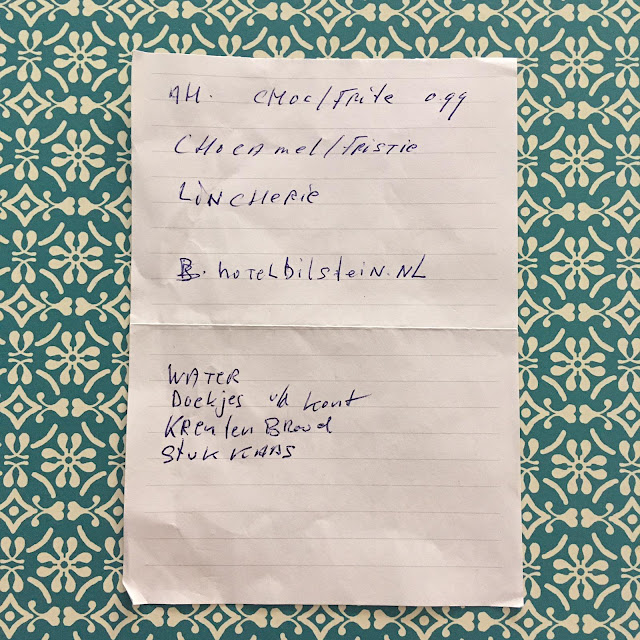 AH. CHOC/Frite 0.99
CHOCAmel/FRISTIE
LiNCHERie
B. hotelbilsteiN.NL
WATER
Doekjes v/d kont
KRenten BRood
StuK KAAS